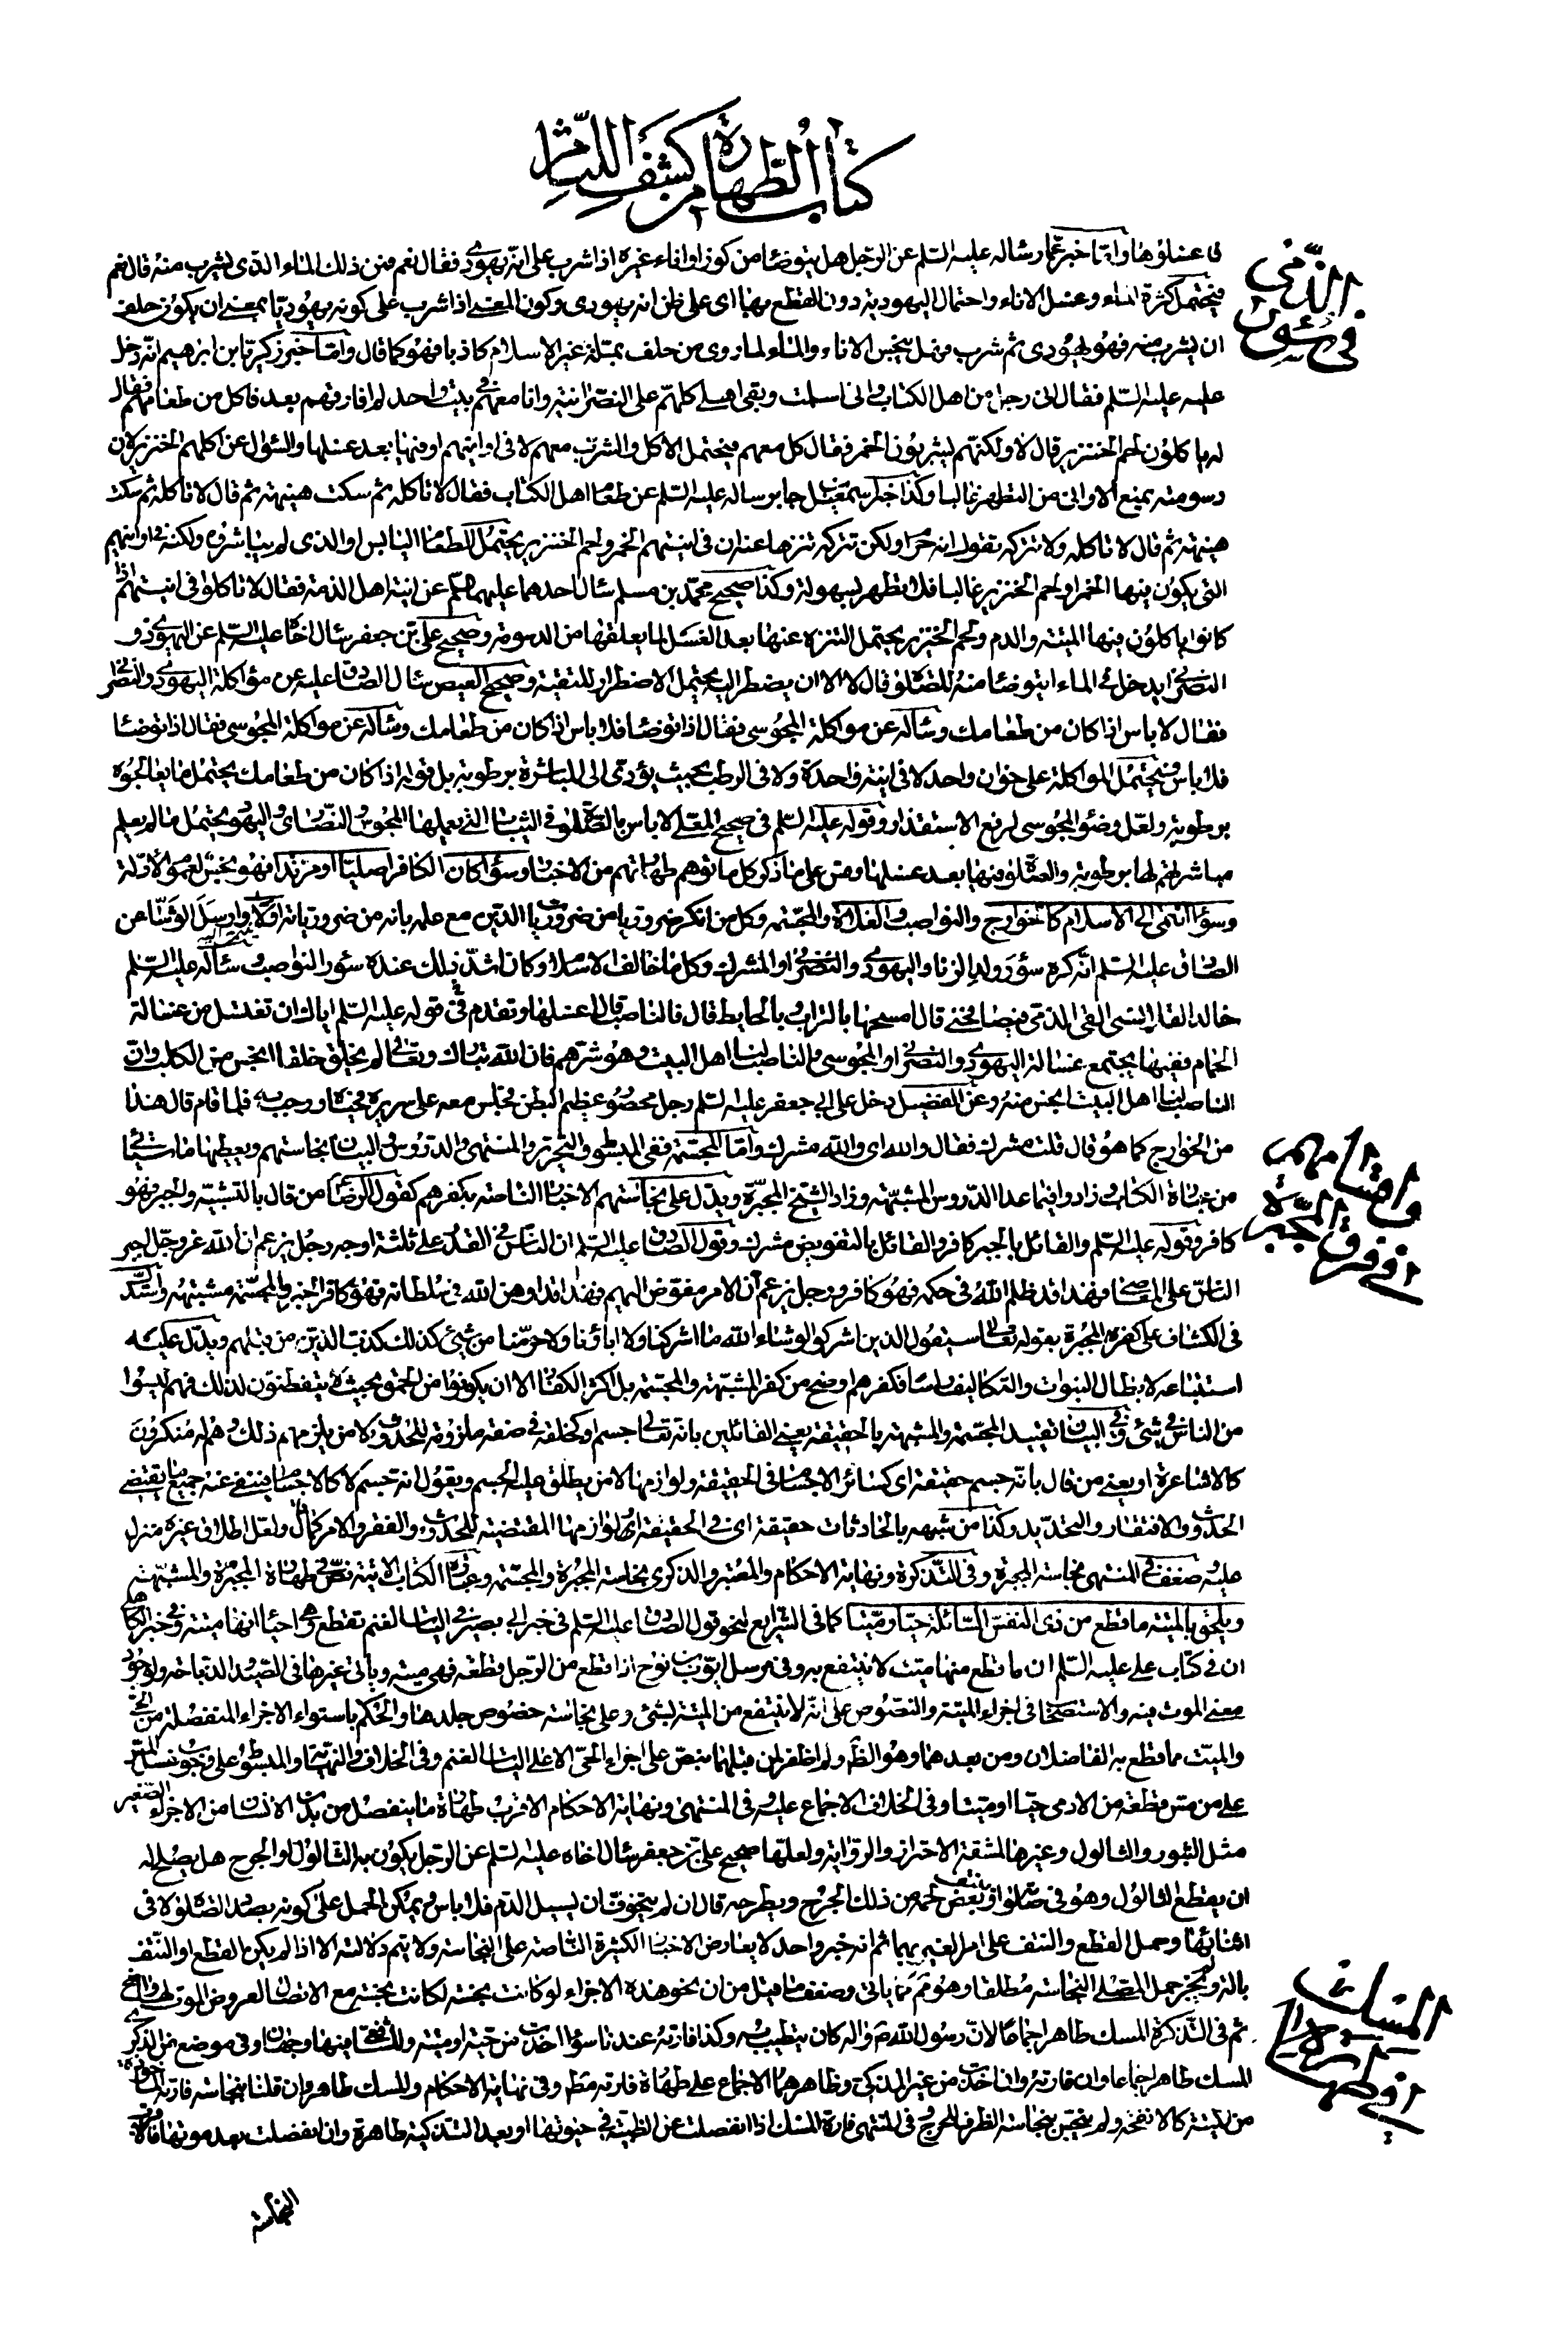 كتاب الطهارة من كشف اللثام
في سؤر الذمي
فى غسلوها واما خبر عمار سأله عليه السلم عن الرجل هل يتوضأ من كوز او اناء غيره اذا شرب على انه يهودي فقال نعم فمن ذلك الماء الذى يشرب منه قال نعم
فيحتمل كثرة الماء وغسل الاناء واحتمال اليهودية دون القطع بها اى على ظن انه يهودى وكون المعنى اذا شرب على كونه يهوديا بمعنى ان يكون حلف
ان يشرب منه فهو يهودى ثم شرب منه لم ينجس الاناء والماء لما روى من حلف بملة غير الاسلام كاذبا فهو كما قال واما خبر زكريا بن ابرهيم انه دخل
عليه عليه السلم فقال انى رجل من اهل الكتاب وانى اسلمت وبقى اهلى كلهم على النصرانية وانا معهم فى بيت واحد لم افارقهم بعد فاكل من طعامهم فقال
له ياكلون لحم الخنزير قال لا ولكنهم يشربون الخمر فقال كل معهم فيحتمل الاكل والشرب معهم لا فى اوانيهم او فيها بعد غسلها والسؤال عن اكلهم الخنزير لان
دسومته يمنع الاوانى من التطهر غالبا وكذا خبر اسمعيل بن جابر سأله عليه السلم عن طعام اهل الكتاب فقال لا تاكله ثم سكت هنيهة ثم قال لا تاكله ثم سكت
هنيهة ثم قال لا تاكله ولا تتركه تقول انه حرام ولكن تتركه تنزها عنه ان فى انيتهم الخمر ولحم الخنزير يحتمل الطعام اليابس او الذى لم يباشروه ولكنه فى اوانيهم
التى يكون فيها الخمر او لحم الخنزير غالبا فلا يطهر بسهولة وكذا صحيح محمد بن مسلم سأل احدهما عليهما السلم عن انية اهل الذمة فقال لا تاكلوا فى انيتهم اذا
كانوا ياكلون فيها الميتة والدم ولحم الخنزير يحتمل التنزه عنها بعد الغسل لما يعلقها من الدسومة وصحيح على بن جعفر سأل اخاه عليه السلم عن اليهودى و
النصرانى يدخل يده فى الماء ايتوضأ منه للصلوة قال لا الا ان يضطر اليه يحتمل الاضطرار للتقية وصحيح العيص سأل الصادق عليه عن مؤاكلة اليهودى والنصرانى
فقال لا باس اذا كان من طعامك وسأله عن مواكلة المجوسى فقال اذا توضأ فلا باس اذا كان من طعامك وسأله عن مواكلة المجوسى فقال اذا توضأ
فلا باس فيحتمل المواكلة على خوان واحد لا فى انية واحدة ولا فى الرطب بحيث يؤدى الى المباشرة برطوبة بل قوله اذا كان من طعامك يحتمل ما يعالجوه
برطوبة ولعل وضوء المجوسى لرفع الاستقذار وقوله عليه السلم فى صحيح المعلى لا باس بالصلوة فى الثياب التى يعملها المجوس والنصارى واليهود يحتمل ما لم يعلم
مباشرتهم لها برطوبة والصلوة فيها بعد غسلها وقس على ما ذكر كل ما توهم طهارتهم من الاخبار وسواء كان الكافر اصليا او مرتدا فهو نجس لعموم الادلة
وسواء انتمى الى الاسلام كالخوارج والنواصب والغلاة والمجسمة وكل من انكر ضروريا من ضروريات الدين مع علمه بانه من ضرورياته اولا وارسل الوشا عن
الصادق عليه السلم انه كره سؤر ولد الزنا واليهودى والنصرانى والمشرك وكل ما خالف الاسلام وكان اشد ذلك عنده سؤر النواصب وسأله عليه السلم
خالد القلانسى القى الذمى فيصافحنى قال امسحها بالتراب وبالحايط قال فالناصب قال اغسلها وتقدم قوله عليه السلم اياك ان تغتسل من غسالة
الحمام ففيها يجتمع غسالة اليهودى والنصرانى والمجوسى والناصب لنا اهل البيت وهو شرهم فان الله تبارك وتعالى لم يخلق خلقا انجس من الكلب وان
الناصب لنا اهل البيت انجس منه وعن الفضيل دخل على ابى جعفر عليه السلم رجل محصور عظيم البطن فجلس معه على سريره فحياه ورحب به فلما قام قال هذا
من الخوارج كما هو قال قلت مشرك فقال والله اى والله مشرك واما المجسمة ففى المبسوط والتحرير والمنتهى والدروس والبيان نجاستهم ويعطيها ما سيأتى
واقسامهم او فرق المجبرة
من عبارة الكتاب وزادوا فيما عدا الدروس المشبهة وزاد الشيخ المجبرة ويدل على نجاستهم الاخبار الناصة بكفرهم كقول الرضا من قال بالتشبيه والجبر فهو
كافر وقوله عليه السلم والقائل بالجبر كافر والقائل بالتفويض مشرك وقول الصادق عليه السلم ان الناس فى القدر على ثلثة اوجه رجل يزعم ان الله عز وجل اجبر
الناس على المعاصى فهذا قد ظلم الله فى حكمه فهو كافر ورجل يزعم ان الامر مفوض اليهم فهذا قد اوهن الله فى سلطانه فهو كافر الخبر والمجسمة مشبهة واستدل
فى الكشاف على كفر المجبرة بقوله تعالى سيقول الذين اشركوا لو شاء الله ما اشركنا ولا اباؤنا ولا حرمنا من شيئ كذلك كذب الذين من قبلهم ويدل عليه
استتباعه لابطال النبوات والتكاليف راسا فكفرهم اوضح من كفر المشبهة والمجسمة بل اكثر الكفار الا ان يكونوا من الحمق بحيث لا يتفطنون لذلك فهم ليسوا
من الناس فى شئ وفى البيان تقييد المجسمة والمشبهة بالحقيقة يعنى القائلين بانه تعالى جسم او كخلقه فى صفة ملزومة للحدوث لا من يلزمهم ذلك وهم له منكرون
كالاشاعرة او يعنى من قال بانه جسم حقيقة اى كسائر الاجسام فى الحقيقة ولوازمها لا من يطلق عليه الجسم ويقول انه جسم لا كالاجسام فينتفى عنه جميع ما يقتضى
الحدوث والافتقار والتحديد وكذا من شبهه بالحادثات حقيقة اى فى الحقيقة او لوازمها المقتضية للحدوث والفقر والامر كما قال ولعل اطلاق غيره منزل
عليه وضعف فى المنتهى نجاسة المجبرة وفى التذكرة ونهاية الاحكام والمعتبر والذكرى نجاسة المجبرة والمجسمة وعبارة الكتاب الاتية نص على طهارة المجبرة والمشبهة
ويلحق بالميتة ما قطع من ذى النفس السائلة حيا وميتا كما فى الشرايع لنحو قول الصادق عليه السلم فى خبر ابى بصير فى اليات الغنم تقطع وهى احياء انها ميتة وفى خبر الكاهلى
ان فى كتاب على عليه السلم ان ما قطع منها ميت لا ينتفع به وفى مرسل ايوب بن نوح اذا قطع من الرجل قطعة فهى ميتة وياتى غيرها فى الصيد والذباحة ولوجود
معنى الموت فيه والاستصحاب فى اجزاء الميتة والنصوص على انه لا ينتفع من الميتة بشئ وعلى نجاسة خصوص جلدها والحكم باستواء الاجزاء المنفصلة من الحى
والميت مما قطع به الفاضلان ومن بعدهما وهو الظاهر ولم اظفر لمن قبلهما بنص على اجزاء الحى الا على اليات الغنم وفى الخلاف والنهاية والمبسوط على وجوب غسل المس
على من مس قطعة من الادمى حيا او ميتا وفى الخلاف الاجماع عليه وفى المنتهى ونهاية الاحكام الاقرب طهارة ما ينفصل من بدن الانسان من الاجزاء الصغيرة
مثل البثور والثالول وغيرها لمشقة الاحتراز والرواية ولعلها صحيح على بن جعفر سأل اخاه عليه السلم عن الرجل يكون به الثالول او الجرح هل يصلح له
ان يقطع الثالول وهو فى صلوته او ينتف بعض لحمه من ذلك الجرح ويطرحه قال ان لم يتخوف ان يسيل الدم فلا باس ويمكن الحمل على كونه بصدد الصلوة لا فى
اثنائها وحمل القطع والنتف على امر الغير بهما ثم انه خبر واحد لا يعارض الاخبار الكثيرة الناصة على النجاسة ولا يتم دلالته الا اذا لم يكن القطع او النتف
المسك او طهارة المسك
بالة ولم يجز حمل المصلى النجاسة مطلقا وهو ثم مما ياتى وضعف ما قيل من ان نحو هذه الاجزاء لو كانت نجسة لكانت نجسة مع الاتصال لعروض الموت لها واضح
ثم فى التذكرة المسك طاهر اجماعا لان رسول الله ص واله كان يتطيب به وكذا فارته عندنا سواء اخذت من حية او ميتة وللشافعى فيها وجهان وفى موضع من الذكرى
المسك طاهر اجماعا وان فارته وان اخذت من غير المذكى وظاهرهما الاجماع على طهارة فارته مطلقا وفى نهاية الاحكام والمسك طاهر وان قلنا بنجاسة فارته الماخوذة
من الميتة كالانفحة ولم ينجس بنجاسة الظرف للحرج وفى المنتهى فارة المسك اذا انفصلت عن الظبية فى حيوتها او بعد التذكية طاهرة وان انفصلت بعد موتها فالاقرب
النجاسة